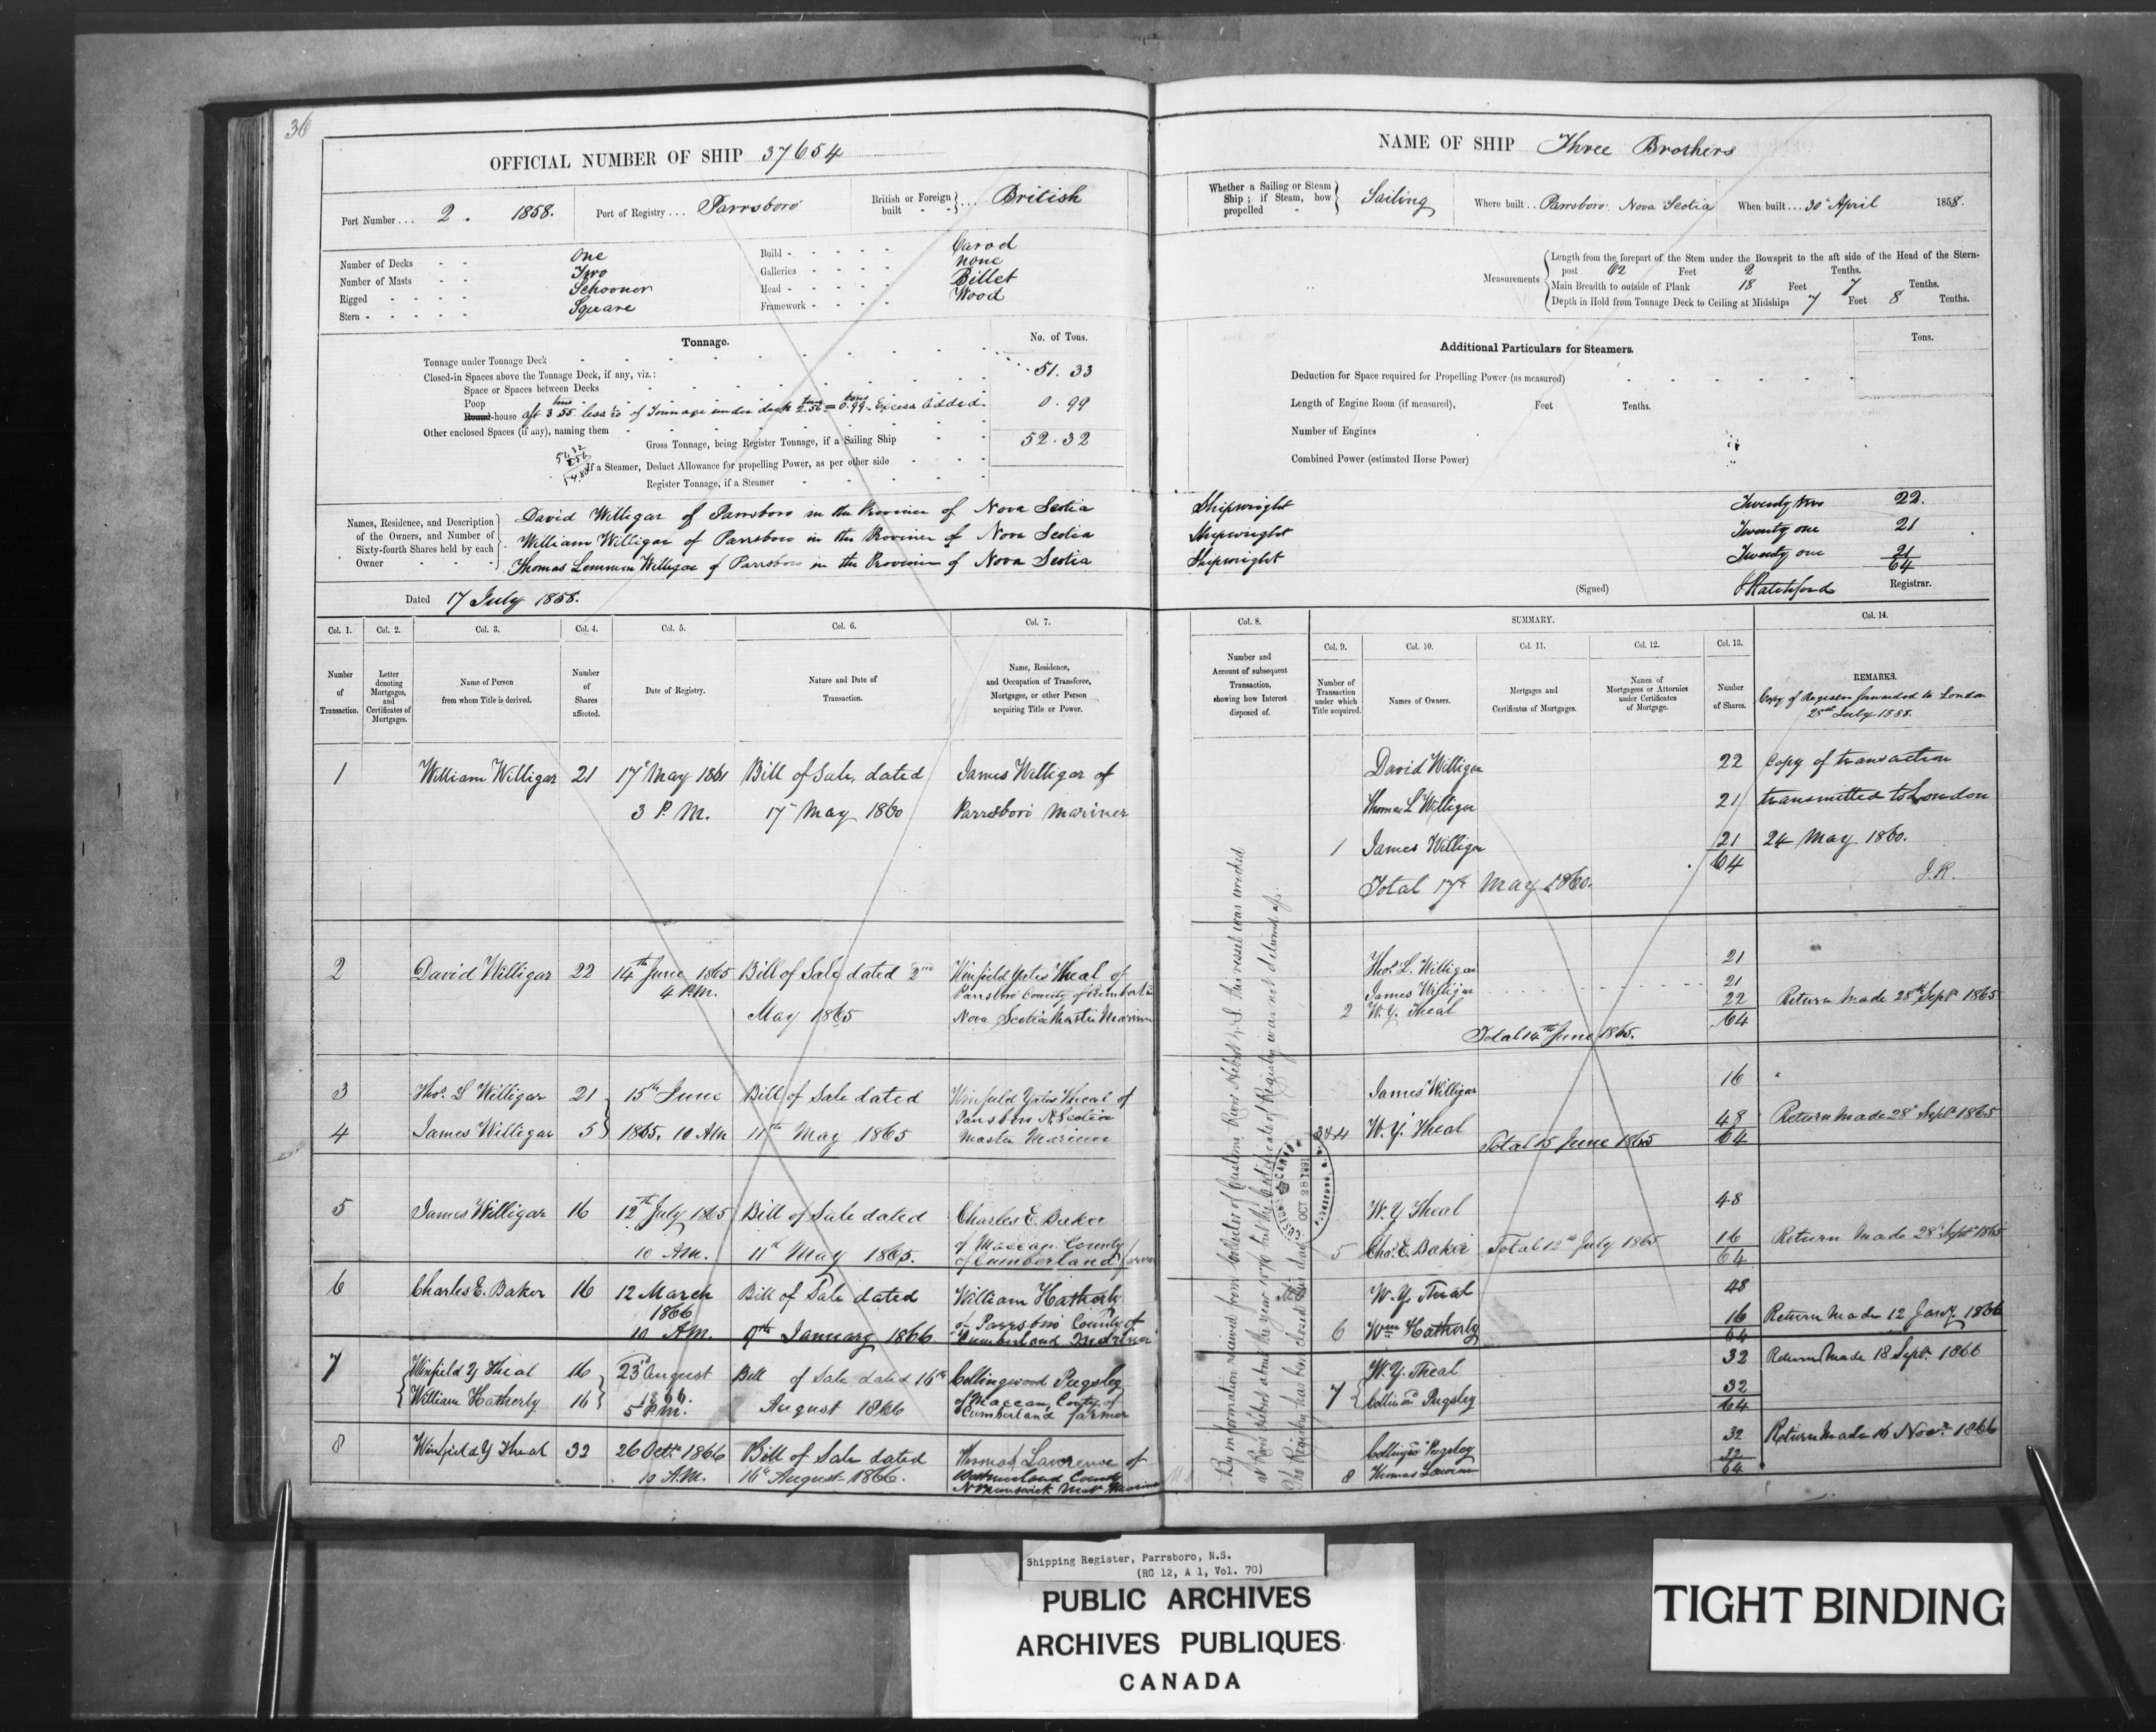 36
OFFICIAL NUMBER OF SHIP 37654
Port Number ... 2. 1858. Port of Registry ... Parrsboro British or Foreign built ... British
Number of Decks One
Number of Masts Two
Rigged Schooner
Stern Square
Build Carvel
Galleries none
Head Billet
Framework Wood
Tonnage. No. of Tons.
Tonnage under Tonnage Deck 51.33
Closed-in Spaces above the Tonnage Deck, if any, viz.:
Space or Spaces between Decks
Poop
Round-house aft 3.55 less of Tonnage under deck 2.56 = 0.99 Excess Added 0.99
Other enclosed Spaces (if any), naming them
Gross Tonnage, being Register Tonnage, if a Sailing Ship 52.32
If a Steamer, Deduct Allowance for propelling Power, as per other side
Register Tonnage, if a Steamer
Names, Residence, and Description of the Owners, and Number of Sixty-fourth Shares held by each Owner
David Willigar of Parrsboro in the Province of Nova Scotia
William Willigar of Parrsboro in the Province of Nova Scotia
Thomas Lemmon Willigar of Parrsboro in the Province of Nova Scotia
Dated 17 July 1858.
Col. 1. Col. 2. Col. 3. Col. 4. Col. 5. Col. 6. Col. 7.
Number of Transaction.
Letter denoting Mortgages, and Certificates of Mortgages.
Name of Person from whom Title is derived.
Number of Shares affected.
Date of Registry.
Nature and Date of Transaction.
Name, Residence, and Occupation of Transferee, Mortgagee, or other Person acquiring Title or Power.
1 William Willigar 21 17 May 1861 Bill of Sale, dated James Willigar of
3 P.M. 17 May 1860 Parrsboro Mariner
2 David Willigar 22 14th June 1865 Bill of Sale dated 2nd Winfield Yates Theal of
4 P.M. May 1865 Parrsboro County of
Nova Scotia Master Mariner
3 Thos. L Willigar 21 15th June Bill of Sale dated Winfield Yates Theal of
Parrsboro N. Scotia
4 James Willigar 5 1865. 10 AM 11th May 1865 Master Mariner
5 James Willigar 16 12th July 1865 Bill of Sale dated Charles E. Baker
10 AM. 11th May 1865. of Maccan County
of Cumberland farmer
6 Charles E. Baker 16 12 March Bill of Sale dated William Hatherly
1866 of Parrsboro County of
10 AM. 9th January 1866 Cumberland Mariner
7 Winfield Y Theal 16 23d August Bill of Sale dated 16th Collingwood Pugsley
William Hatherly 16 1866. August 1866 of Maccan, County of
5 P.M. Cumberland farmer
8 Winfield Y Theal 32 26 Octr. 1866 Bill of Sale dated Thomas Lawrence of
10 A.M. 16th August 1866. Westmorland County
N Brunswick Mariner
NAME OF SHIP Three Brothers
Whether a Sailing or Steam Ship; if Steam, how propelled Sailing Where built .. Parrsboro Nova Scotia When built ... 30 April 1858.
Measurements
Length from the forepart of the Stem under the Bowsprit to the aft side of the Head of the Stern-
post 62 Feet 2 Tenths.
Main Breadth to outside of Plank 18 Feet 7 Tenths.
Depth in Hold from Tonnage Deck to Ceiling at Midships 7 Feet 8 Tenths.
Additional Particulars for Steamers. Tons.
Deduction for Space required for Propelling Power (as measured)
Length of Engine Room (if measured), Feet Tenths.
Number of Engines
Combined Power (estimated Horse Power)
Shipwright Twenty two 22.
Shipwright Twenty one 21
Shipwright Twenty one 21
64
(Signed) J Ratchford Registrar.
Col. 8. SUMMARY. Col. 14.
Col. 9. Col. 10. Col. 11. Col. 12. Col. 13.
Number and Account of subsequent Transaction, showing how Interest disposed of.
Number of Transaction under which Title acquired.
Names of Owners.
Mortgages and Certificates of Mortgages.
Names of Mortgagees or Attornies under Certificates of Mortgage.
Number of Shares.
REMARKS.
Copy of Register forwarded to London
28th July 1858.
David Willigar 22 Copy of transaction
Thomas L Willigar 21 transmitted to London
1 James Willigar 21 24 May 1860.
64
Total 17th May 1860. J.R.
Thos. L. Willigar 21
James Willigar 21
2 W. Y. Theal 22 Return Made 28th Sept 1865
64
Total 14th June 1865.
James Willigar 16
3 & 4 W. Y. Theal 48 Return Made 28 Sept 1865
Total 15 June 1865 64
W. Y Theal 48
5 Chas. E. Baker Total 12th July 1865 16 Return Made 28 Sept 1865
64
W. Y. Theal 48
6 Wm. Hatherly 16 Return Made 12 Jany. 1866
64
W. Y. Theal 32 Return Made 18 Sept. 1866
7 Pugsley 32
64
Pugsley 32 Return Made 16 Novr. 1866
8 Thomas 32
64
By information received from Collector of Customs, River Hebert, N.S. this vessel was wrecked
at River Hebert about the year 1870 but the Certificate of Registry was not delivered up.
The Registry has been closed this day.
CUSTOMS CANADA
OCT 28 1891
PARRSBORO, N.S.
Shipping Register, Parrsboro, N.S.
(RG 12, A 1, Vol. 70)
PUBLIC ARCHIVES
ARCHIVES PUBLIQUES
CANADA
TIGHT BINDING